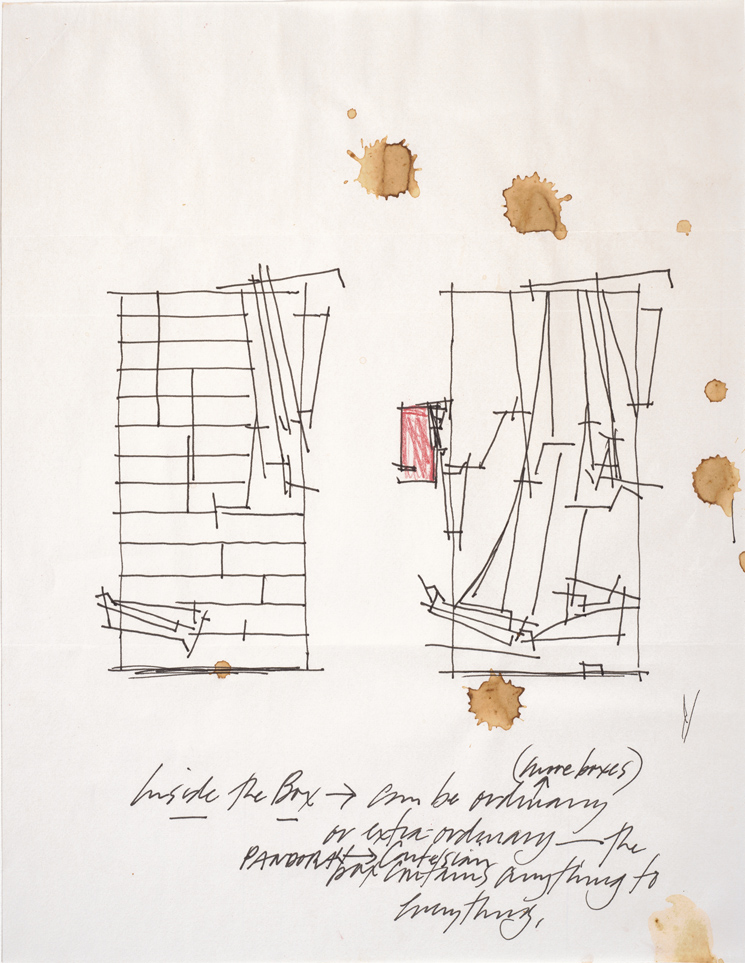 (more boxes)
Inside the Box → can be ordinary
or extra-ordinary — the
PANDORA → Cartesian
box contains anything to
everything.